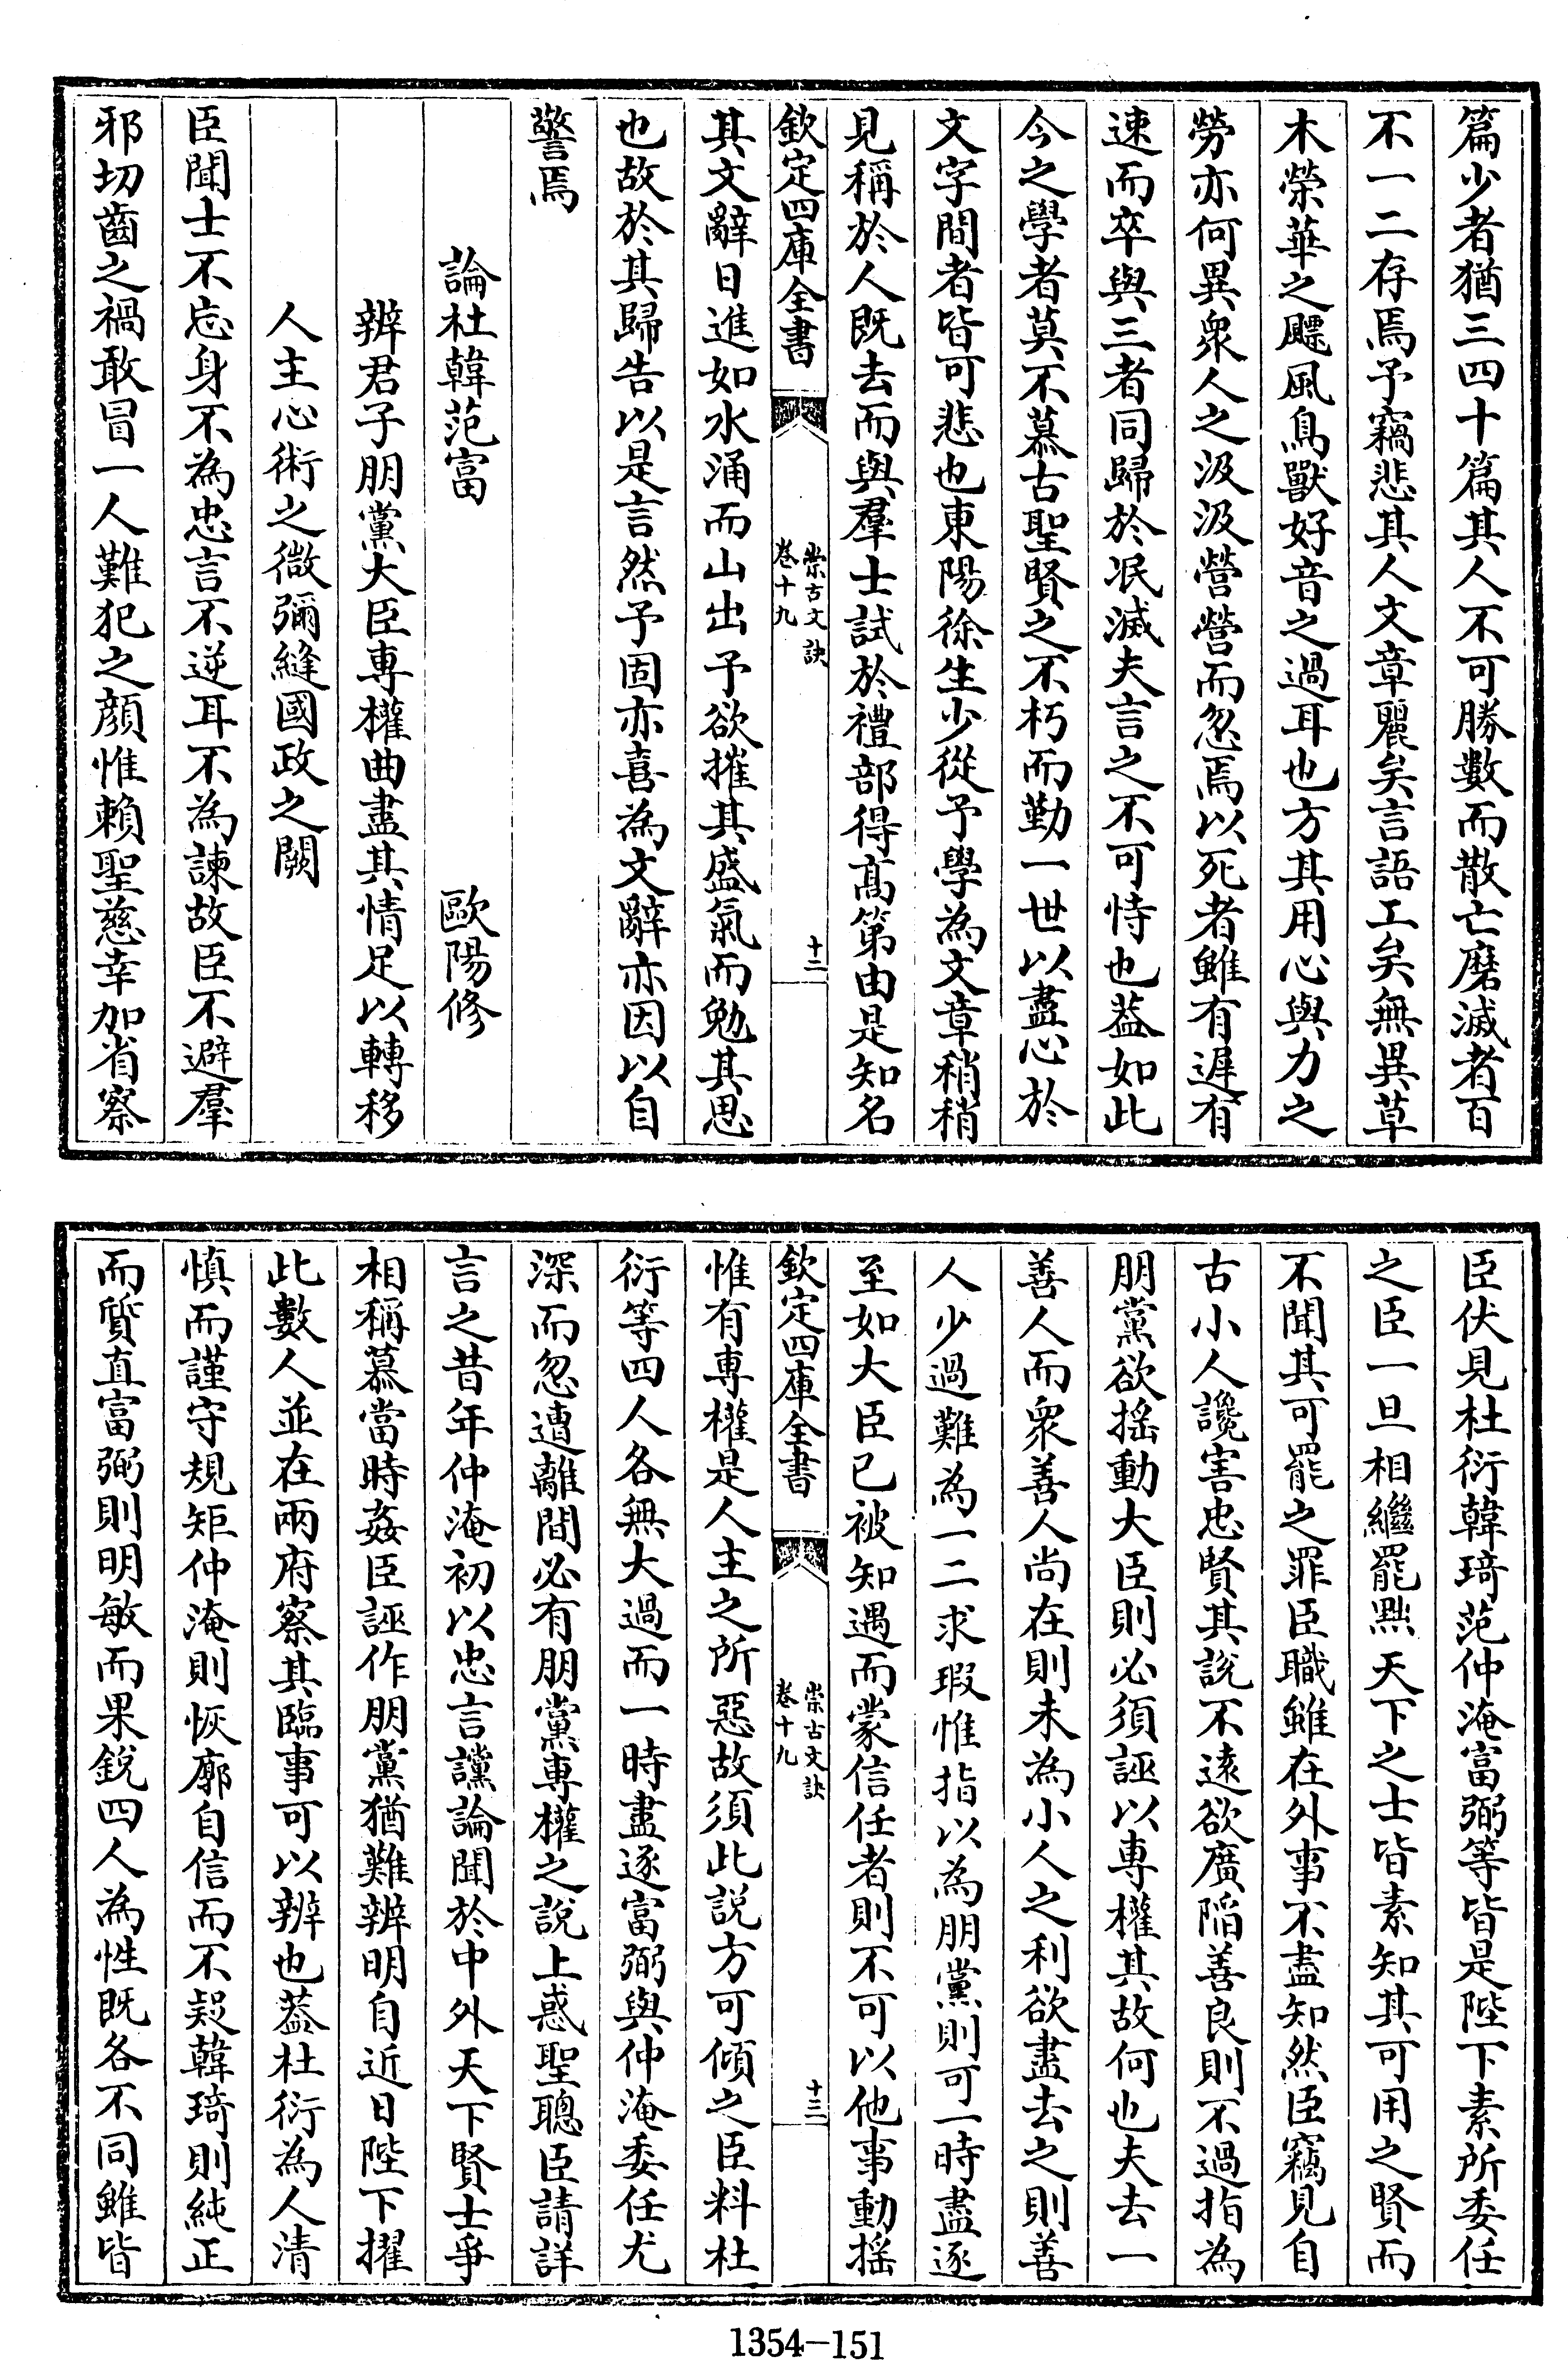 篇少者猶三四十篇其人不可勝數而散亡磨滅者百
不一二存焉予竊悲其人文章麗矣言語工矣無異草
木榮華之飄風鳥獸好音之過耳也方其用心與力之
勞亦何異衆人之汲汲營營而忽焉以死者雖有遲有
速而卒與三者同歸於泯滅夫言之不可恃也葢如此
今之學者莫不慕古聖賢之不朽而勤一世以盡心於
文字間者皆可悲也東陽徐生少從予學為文章稍稍
見稱於人既去而與羣士試於禮部得髙第由是知名
欽定四庫全書
崇古文訣
卷十九
十二
其文辭日進如水涌而山出予欲摧其盛氣而勉其思
也故於其歸告以是言然予固亦喜為文辭亦因以自
警焉
論杜韓范富 歐陽修
辨君子朋黨大臣專權曲盡其情足以轉移
人主心術之微彌縫國政之闕
臣聞士不忘身不為忠言不逆耳不為諫故臣不避羣
邪切齒之禍敢冒一人難犯之顔惟賴聖慈幸加省察
臣伏見杜衍韓琦范仲淹富弼等皆是陛下素所委任
之臣一旦相繼罷黜天下之士皆素知其可用之賢而
不聞其可罷之罪臣職雖在外事不盡知然臣竊見自
古小人讒害忠賢其說不逺欲廣陷善良則不過指為
朋黨欲搖動大臣則必須誣以專權其故何也夫去一
善人而衆善人尚在則未為小人之利欲盡去之則善
人少過難為一二求瑕惟指以為朋黨則可一時盡逐
至如大臣已被知遇而蒙信任者則不可以他事動搖
欽定四庫全書
崇古文訣
卷十九
十三
惟有專權是人主之所惡故須此説方可傾之臣料杜
衍等四人各無大過而一時盡逐富弼與仲淹委任尤
深而忽遭離間必有朋黨專權之說上惑聖聰臣請詳
言之昔年仲淹初以忠言讜論聞於中外天下賢士爭
相稱慕當時姦臣誣作朋黨猶難辨明自近日陛下擢
此數人並在兩府察其臨事可以辨也葢杜衍為人清
慎而謹守規矩仲淹則恢廓自信而不疑韓琦則純正
而質直富弼則明敏而果銳四人為性既各不同雖皆
1354-151